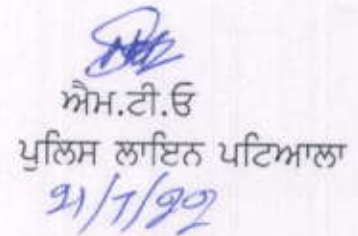 ਐਮ.ਟੀ.ਓ
ਪੁਲਿਸ ਲਾਇਨ ਪਟਿਆਲਾ
21/7/22